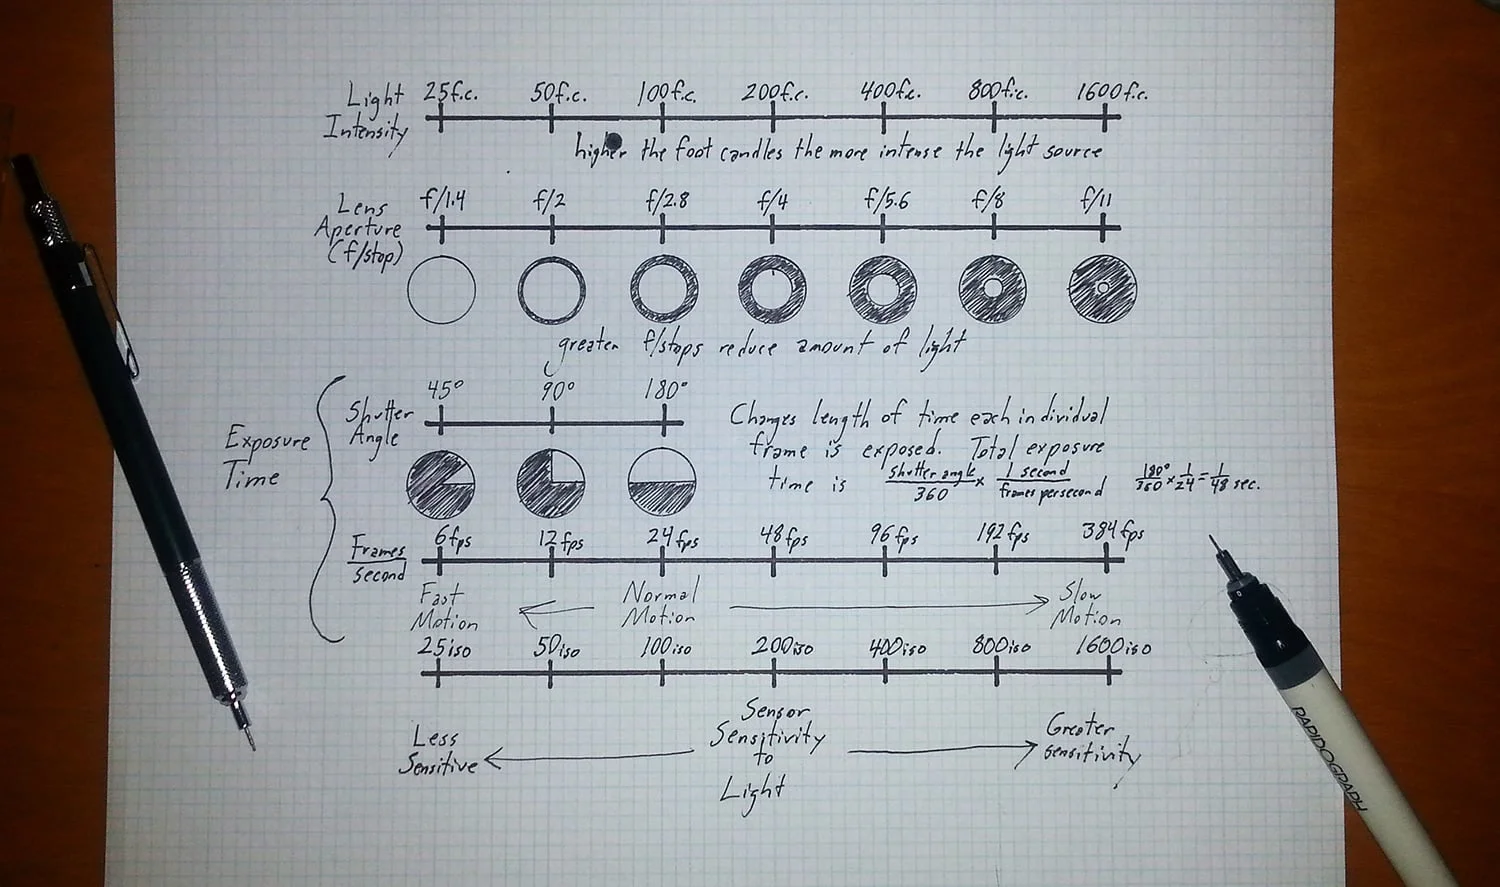 Light Intensity
25f.c. 50f.c. 100f.c. 200f.c. 400f.c. 800f.c. 1600f.c.
higher the foot candles the more intense the light source
Lens Aperture (f/stop)
f/1.4 f/2 f/2.8 f/4 f/5.6 f/8 f/11
greater f/stops reduce amount of light
Exposure Time
Shutter Angle
45° 90° 180°
Changes length of time each individual
frame is exposed. Total exposure
time is shutter angle/360 × 1 second/frames per second 180°/360 × 1/24 = 1/48 sec.
Frames/second
6fps 12fps 24fps 48fps 96fps 192fps 384fps
Fast Motion
Normal Motion
Slow Motion
25iso 50iso 100iso 200iso 400iso 800iso 1600iso
Less Sensitive
Sensor Sensitivity to Light
Greater Sensitivity
RAPIDOGRAPH